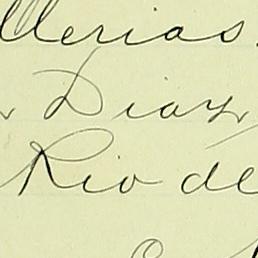 llerias.
Diaz,
Rio de